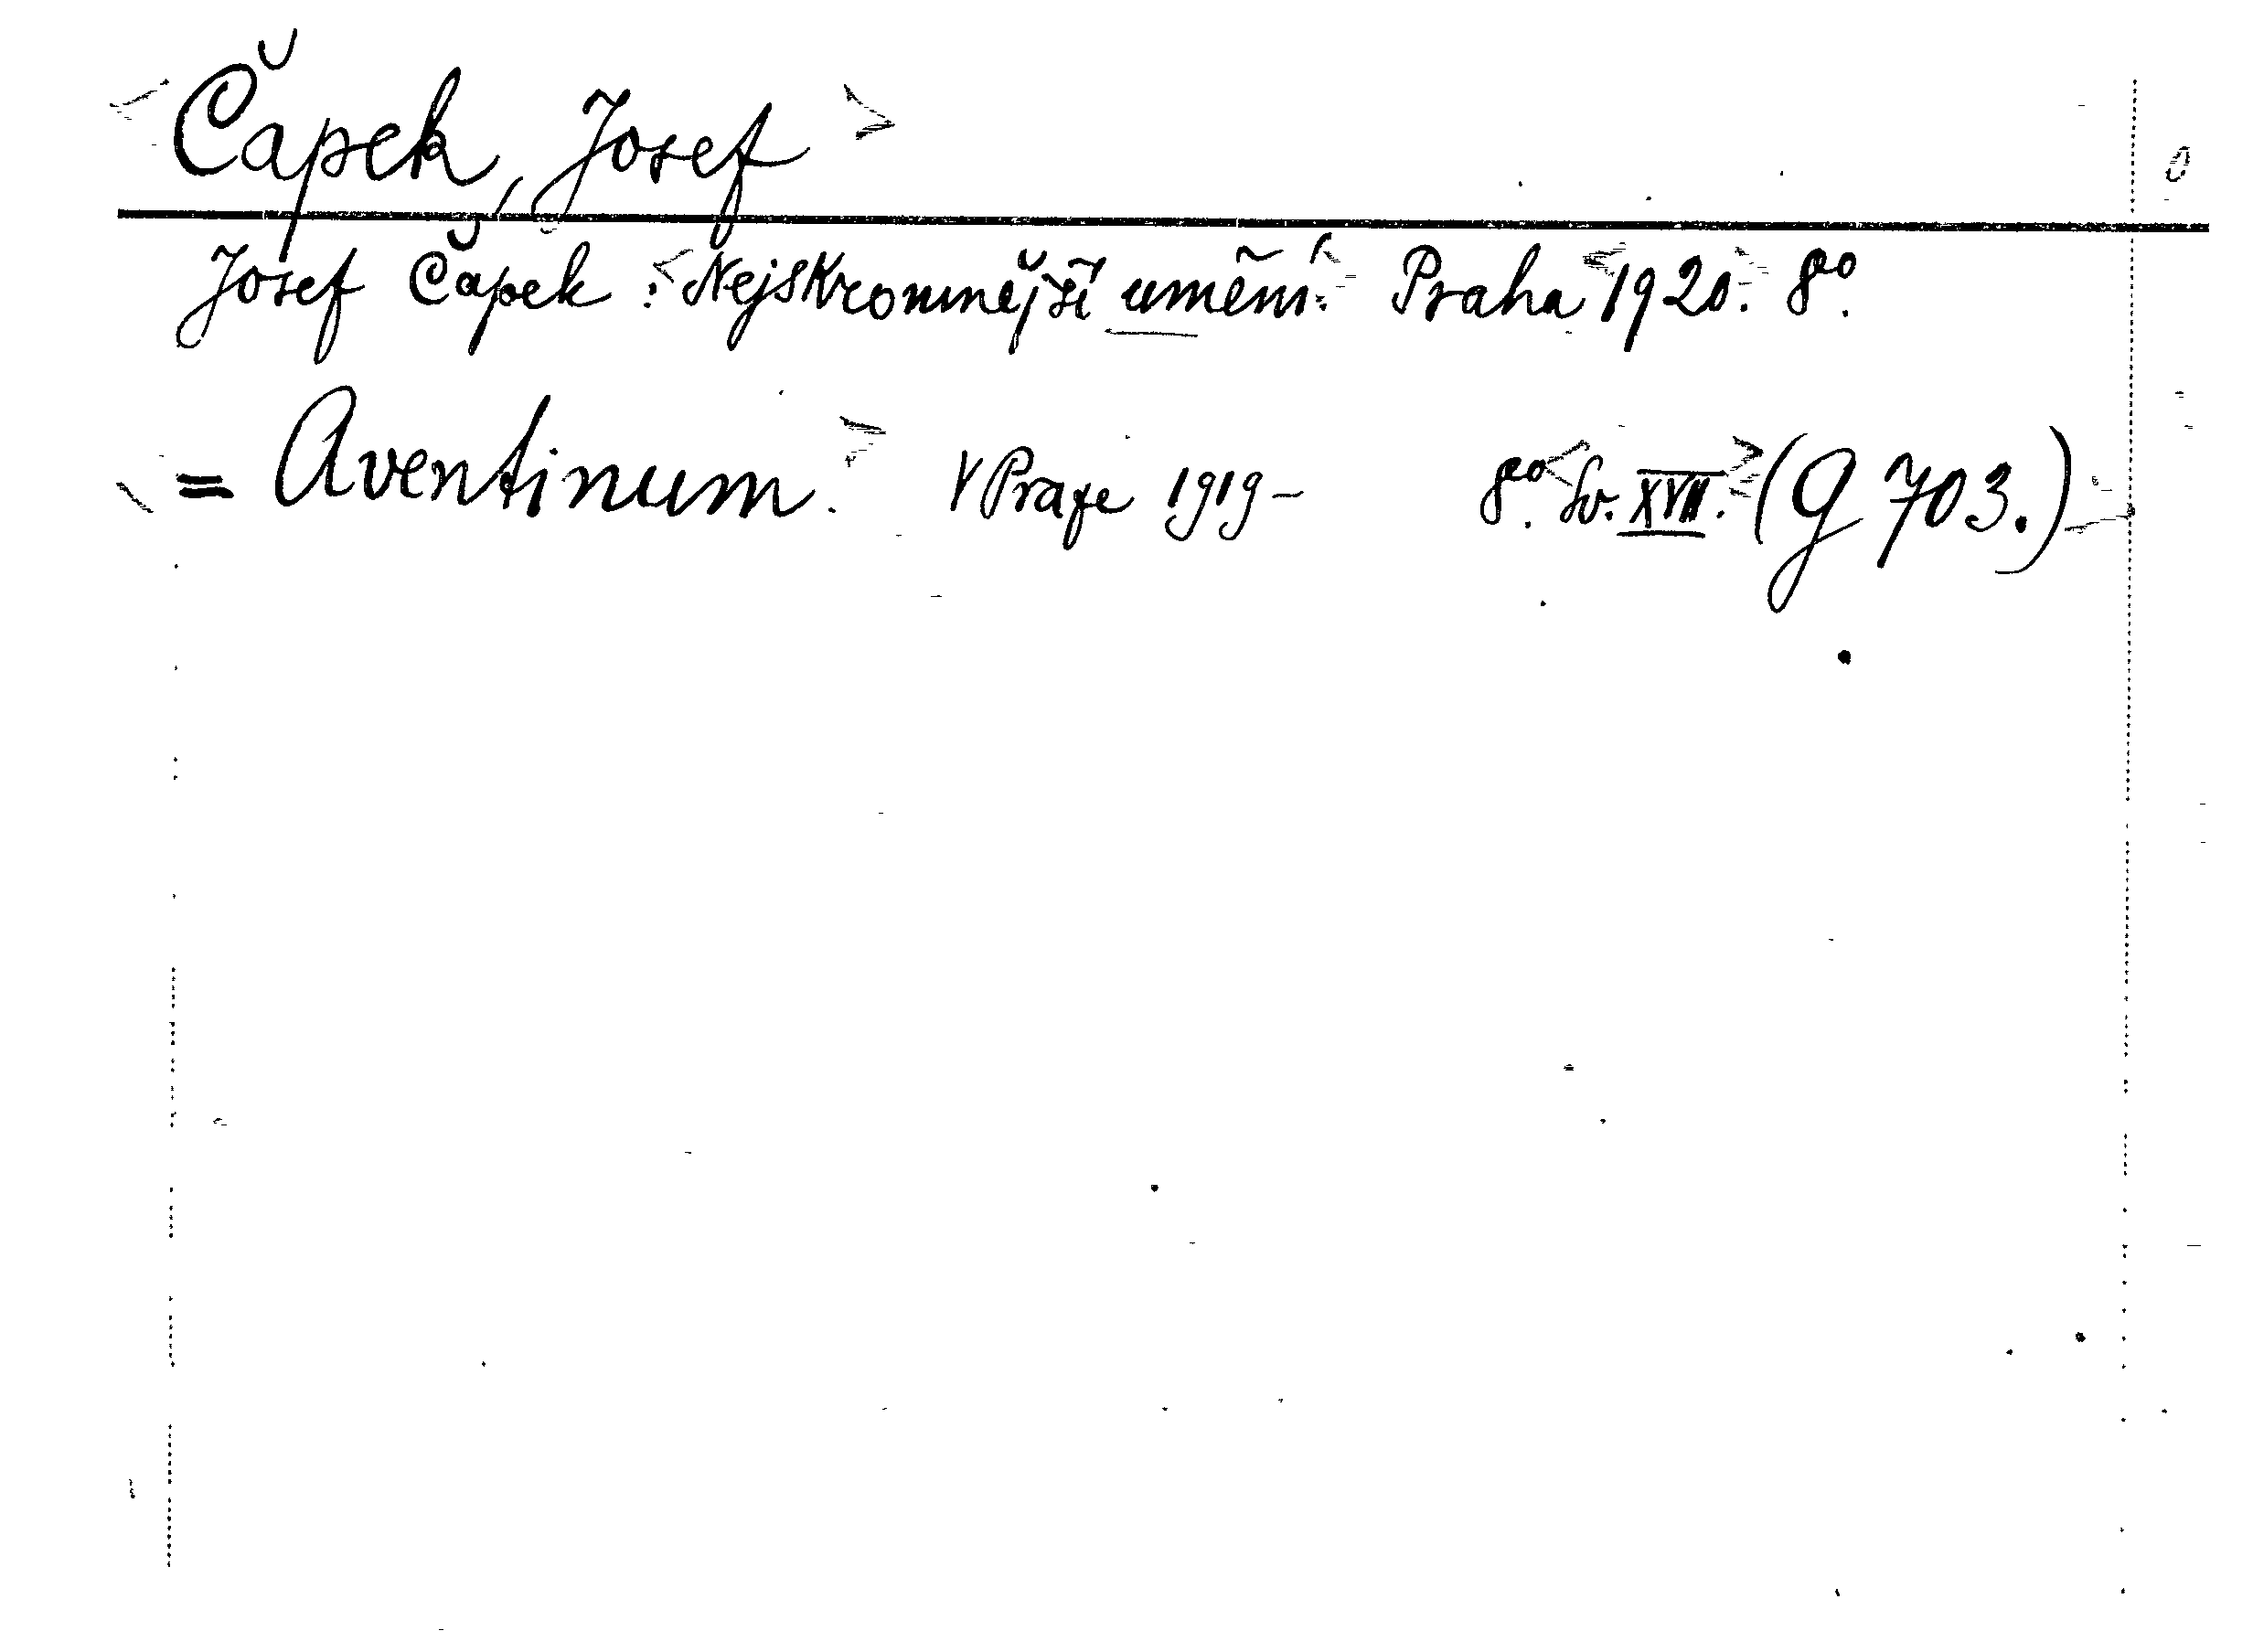 <Čapek, Josef>
Josef Čapek: <Nejskromnější umění. Praha <1920. 8°.
= Aventinum. V Praze 1919- 8°. <Sv. XVII.> (G 703.)